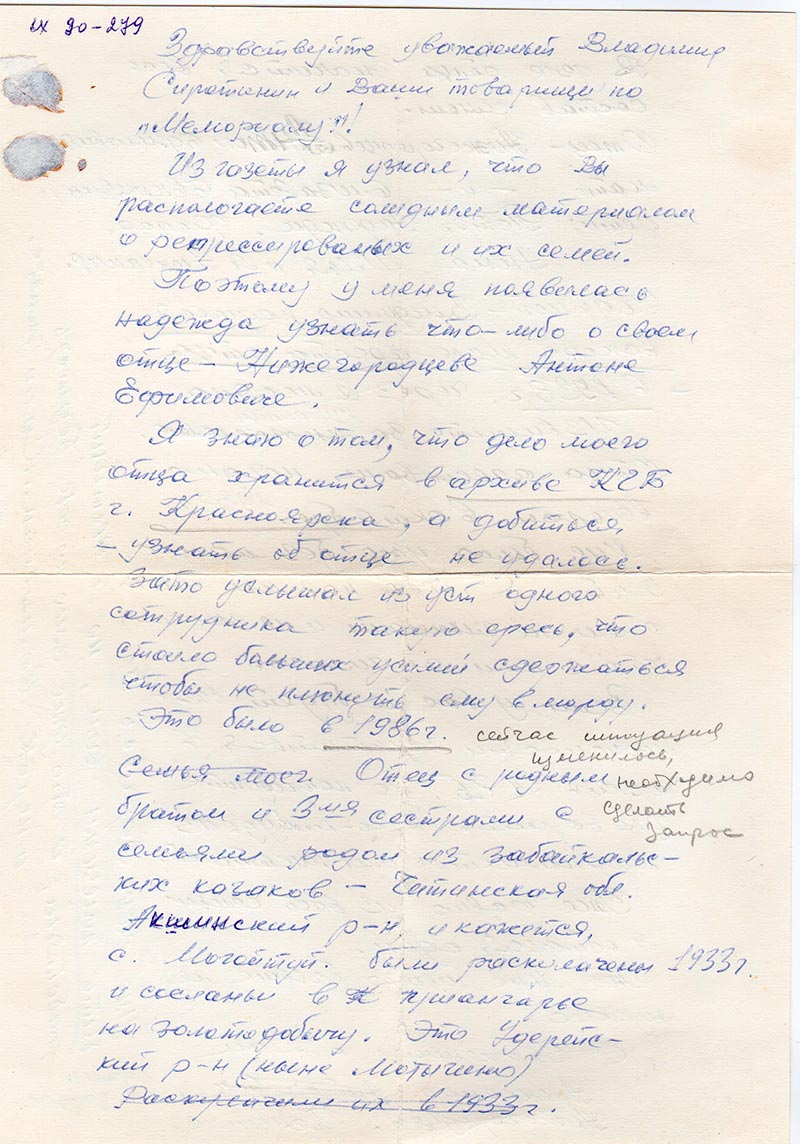 IX 90-279
Здравствуйте уважаемый Владимир
Сиротинин и Ваши товарищи по
"Мемориалу"!
Из газеты я узнал, что Вы
распологаете солидным материалом
о репрессированых и их семей.
Поэтому у меня появилась
надежда узнать что-либо о своем
отце – Нижегородцеве Антоне
Ефимовиче.
Я знаю о том, что дело моего
отца хранится в архиве КГБ
г. Красноярска, а добиться
– узнать об отце не удалось.
Я услышал из уст одного
сотрудника такую ересь, что
стоило больших усилий сдержаться
чтобы не плюнуть ему в морду.
Это было в 1986г.
сейчас ситуация
изменилось,
необходимо
сделать
запрос
Семья моег. Отец с родным
братом и 3мя сестрами с
семьями родом из забайкальс-
ких казаков – Читинская обл.
Акшинский р-н, и кажется,
с. Могойтуй. были раскулачены 1933г.
и сосланы в приангарье
на золотодобычу. Это Удерейс-
кий р-н (ныне Мотыгино)
Раскулачили их в 1933г.